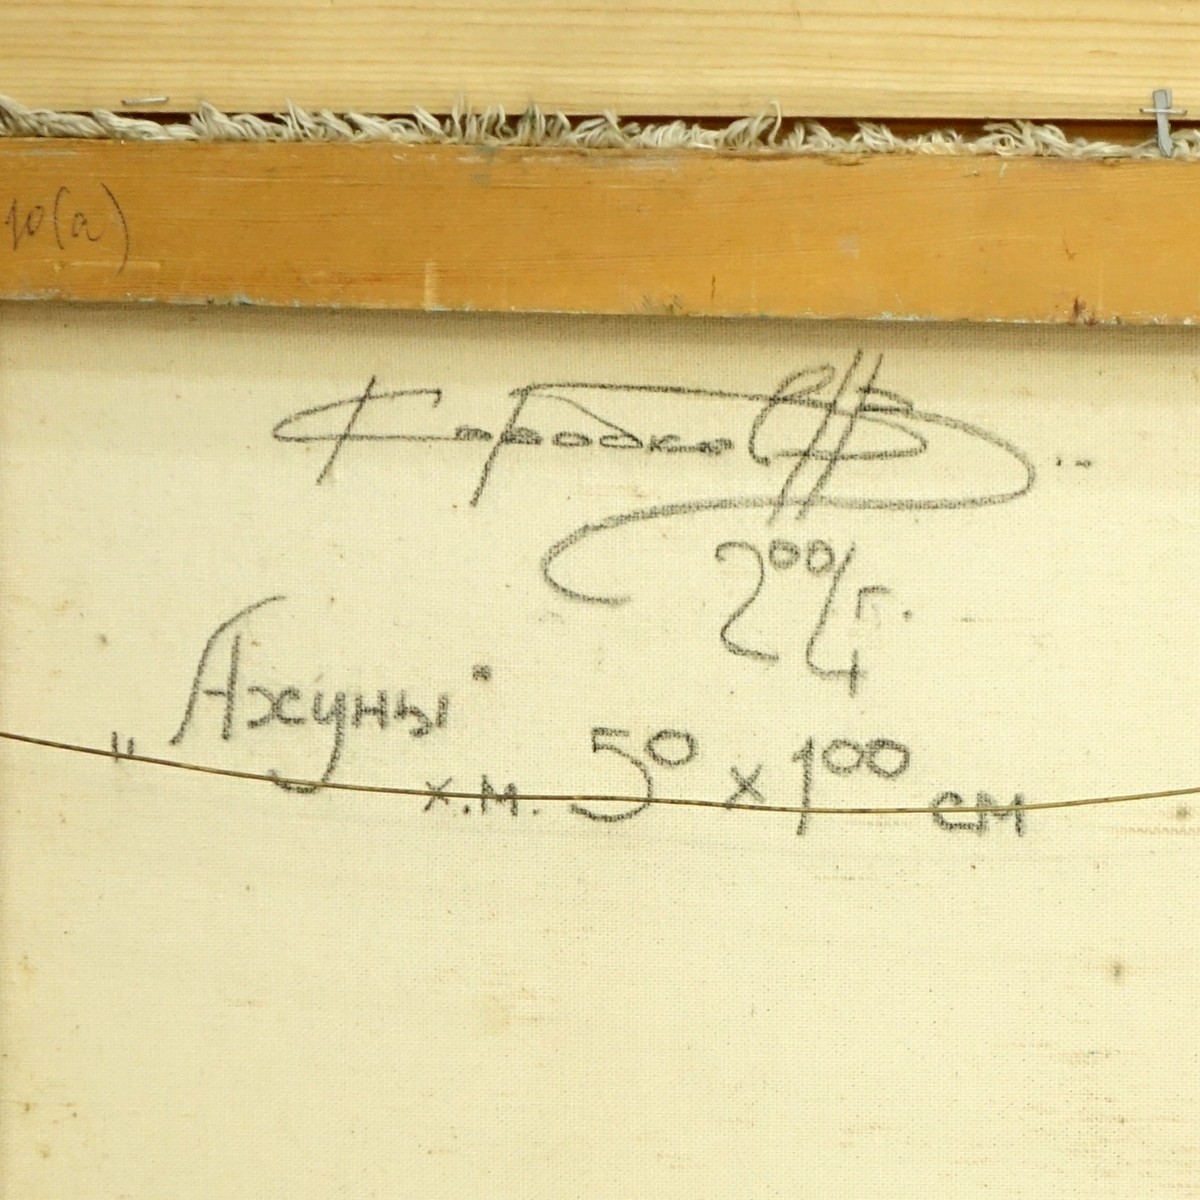 10(а)
2004 г.
"Ахуны"
х.м. 50 x 100 см